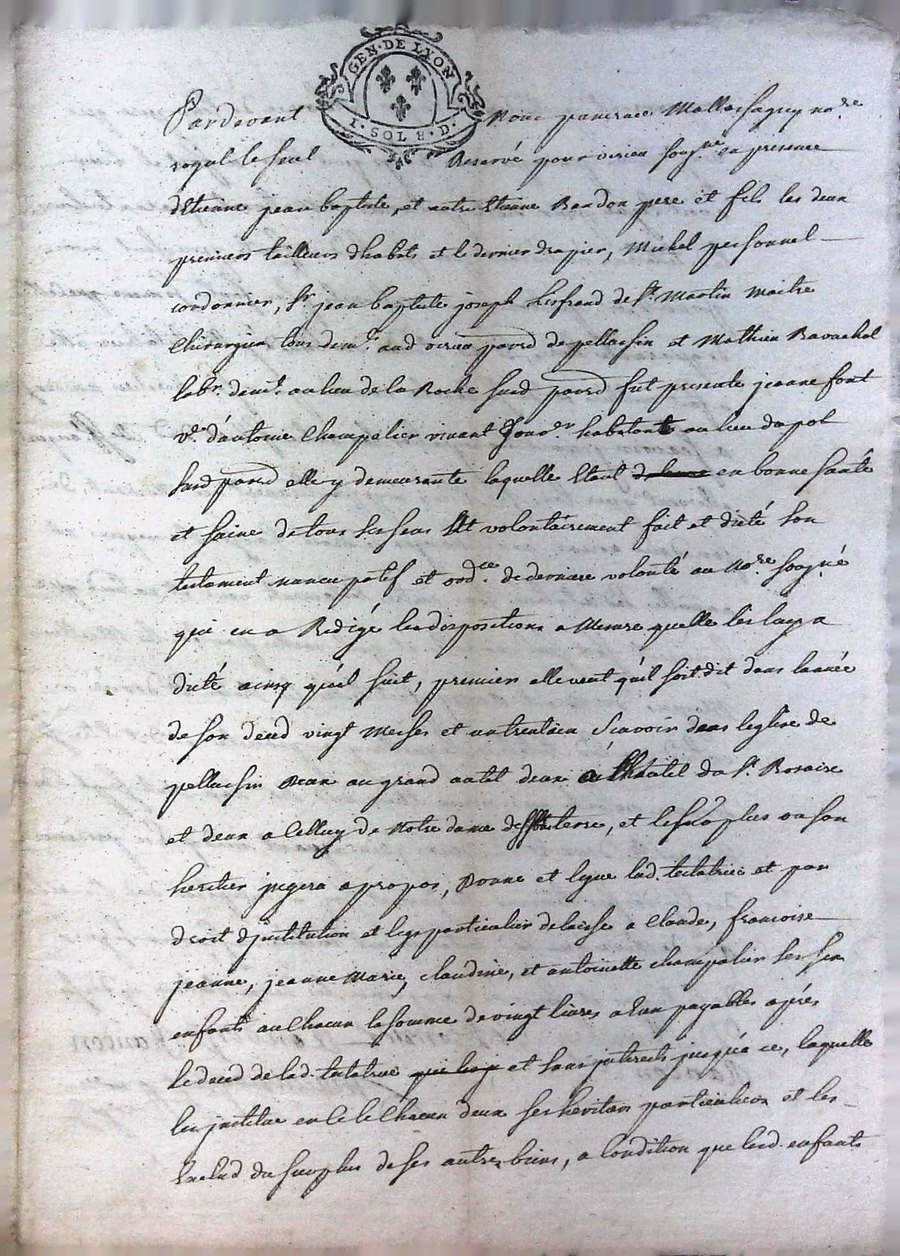 GEN · DE LYON
1 · SOL 8 · D ·
Pardevant Nous pancrace no.re
royal le seul Reservé pour virieu soug.né en presence
d'Etienne jean baptiste, et autre Etienne Bandon pere et fils les deux
premiers tailleurs d'habits et le dernier drapier, Michel personnel
cordonnier, Sr. jean baptiste joseph de St. Martin Maitre
Chirurgien tous dem.t aud virieu parr.e de pellussin et Mathieu Ravachol
lab.r dem.t au lieu de la Roche susd parr.e fut presente jeanne font
v.e d'antoine Champalier vivant habitante au lieu du pol
susd parr.e elle y demeurante laquelle Etant en bonne santé
et saine de tous ses sens Et volontairement fait et dicté son
testament nuncupatif et ord.ce de derniere volonté au No.re soug.né
qui en a Redigé les dispositions a Mesure quelle les luy a
dicté ainsy qu'il suit, premier elle veut qu'il soit dit dans lannée
de son deced vingt Messes et un trentain Scavoir dans leglise de
pellussin Deux au grand autel deux a l'hautel du St. Rosaire
et deux a Celluy de Notre dame de, et le surplus ou son
heritier jugera apropos, Donne et legue lad. testatrice et par
droit d'jnstitution et legs particulier delaisse a Claude, francoise
jeanne, jeanne Marie, claudine, et antoinette champalier ses six
enfants au Chacun la somme de vingt livres a lun payables après
le deced de lad. testatrice et sans jnterests jusqu'a ce, laquelle
les jnstitue en ce le Chacun deux ses heritiers particuliers et les
Exclud du surplus de ses autres biens, a Condition que lesd. enfants